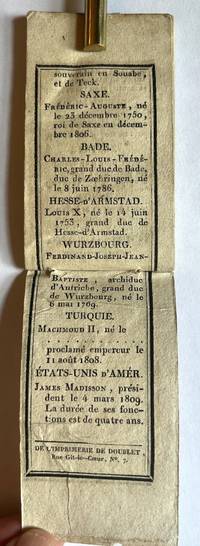 souverain en Souabe,
et de Teck.
SAXE.
FRÉDÉRIC-AUGUSTE, né
le 23 décembre 1750,
roi de Saxe en décem-
bre 1806.
BADE.
CHARLES-LOUIS-FRÉDÉ-
RIC, grand duc de Bade,
duc de Zœhringen, né
le 8 juin 1786.
HESSE-d'ARMSTAD.
LOUIS X, né le 14 juin
1753, grand duc de
Hesse-d'Armstad.
WURZBOURG.
FERDINAND-JOSEPH-JEAN-
BAPTISTE, archiduc
d'Autriche, grand duc
de Wurzbourg, né le
6 mai 1769.
TURQUIE.
MACHMOUD II, né le
. . . . . . . . . . . . .
proclamé empereur le
11 août 1808.
ÉTATS-UNIS D'AMÉR.
JAMES MADISSON, prési-
dent le 4 mars 1809.
La durée de ses fonc-
tions est de quatre ans.
DE L'IMPRIMERIE DE DOUBLET,
Rue Gît-le-Cœur, N°. 7.